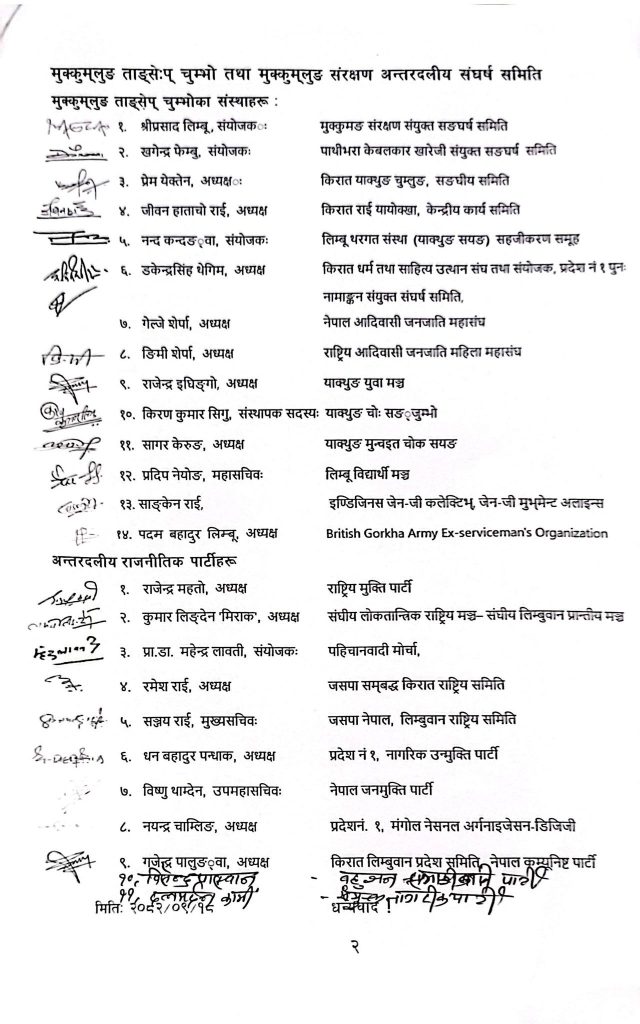 मुक्कुमलुङ ताङ्सेःप् चुम्भो तथा मुक्कुमलुङ संरक्षण अन्तरदलीय संघर्ष समिति
मुक्कुमलुङ ताङ्सेप् चुम्भोका संस्थाहरू :
१. श्रीप्रसाद लिम्बू, संयोजकः मुक्कुमङ संरक्षण संयुक्त सङघर्ष समिति
२. खगेन्द्र फेम्बु, संयोजकः पाथीभरा केबलकार खारेजी संयुक्त सङघर्ष समिति
३. प्रेम येक्तेन, अध्यक्षः किरात याक्थुङ चुम्लुङ, सङघीय समिति
४. जीवन हाताचो राई, अध्यक्ष किरात राई यायोक्खा, केन्द्रीय कार्य समिति
५. नन्द कन्दङ्वा, संयोजकः लिम्बू थरगत संस्था (याक्थुङ सयङ) सहजीकरण समूह
६. डकेन्द्रसिंह थेगिम, अध्यक्ष किरात धर्म तथा साहित्य उत्थान संघ तथा संयोजक, प्रदेश नं १ पुनः
नामाङ्कन संयुक्त संघर्ष समिति,
७. गेल्जे शेर्पा, अध्यक्ष नेपाल आदिवासी जनजाति महासंघ
८. ङिमी शेर्पा, अध्यक्ष राष्ट्रिय आदिवासी जनजाति महिला महासंघ
९. राजेन्द्र इघिङ्गो, अध्यक्ष याक्थुङ युवा मञ्च
१०. किरण कुमार सिगु, संस्थापक सदस्यः याक्थुङ चोः सङ्जुम्भो
११. सागर केरुङ, अध्यक्ष याक्थुङ मुन्धइत चोक सयङ
१२. प्रदिप नेयोङ, महासचिवः लिम्बू विद्यार्थी मञ्च
१३. साङ्केन राई, इण्डिजिनस जेन-जी कलेक्टिभ्, जेन-जी मुभ्मेन्ट अलाइन्स
१४. पदम बहादुर लिम्बू, अध्यक्ष British Gorkha Army Ex-serviceman's Organization
अन्तरदलीय राजनीतिक पार्टीहरू
१. राजेन्द्र महतो, अध्यक्ष राष्ट्रिय मुक्ति पार्टी
२. कुमार लिङ्देन 'मिराक', अध्यक्ष संघीय लोकतान्त्रिक राष्ट्रिय मञ्च– संघीय लिम्बुवान प्रान्तीय मञ्च
३. प्रा.डा. महेन्द्र लावती, संयोजकः पहिचानवादी मोर्चा,
४. रमेश राई, अध्यक्ष जसपा सम्बद्ध किरात राष्ट्रिय समिति
५. सञ्जय राई, मुख्यसचिवः जसपा नेपाल, लिम्बुवान राष्ट्रिय समिति
६. धन बहादुर पन्धाक, अध्यक्ष प्रदेश नं १, नागरिक उन्मुक्ति पार्टी
७. विष्णु थाम्देन, उपमहासचिवः नेपाल जनमुक्ति पार्टी
८. नयन्द्र चाम्लिङ, अध्यक्ष प्रदेशनं. १, मंगोल नेसनल अर्गनाइजेसन-डिजिजी
९. गजेन्द्र पालुङ्वा, अध्यक्ष किरात लिम्बुवान प्रदेश समिति, नेपाल कम्युनिष्ट पार्टी
१०, पासवान - बहुजन समाजवादी पार्टी
११, कामी - पार्टी
मितिः २०८२/०९/१८ धन्यवाद !
२